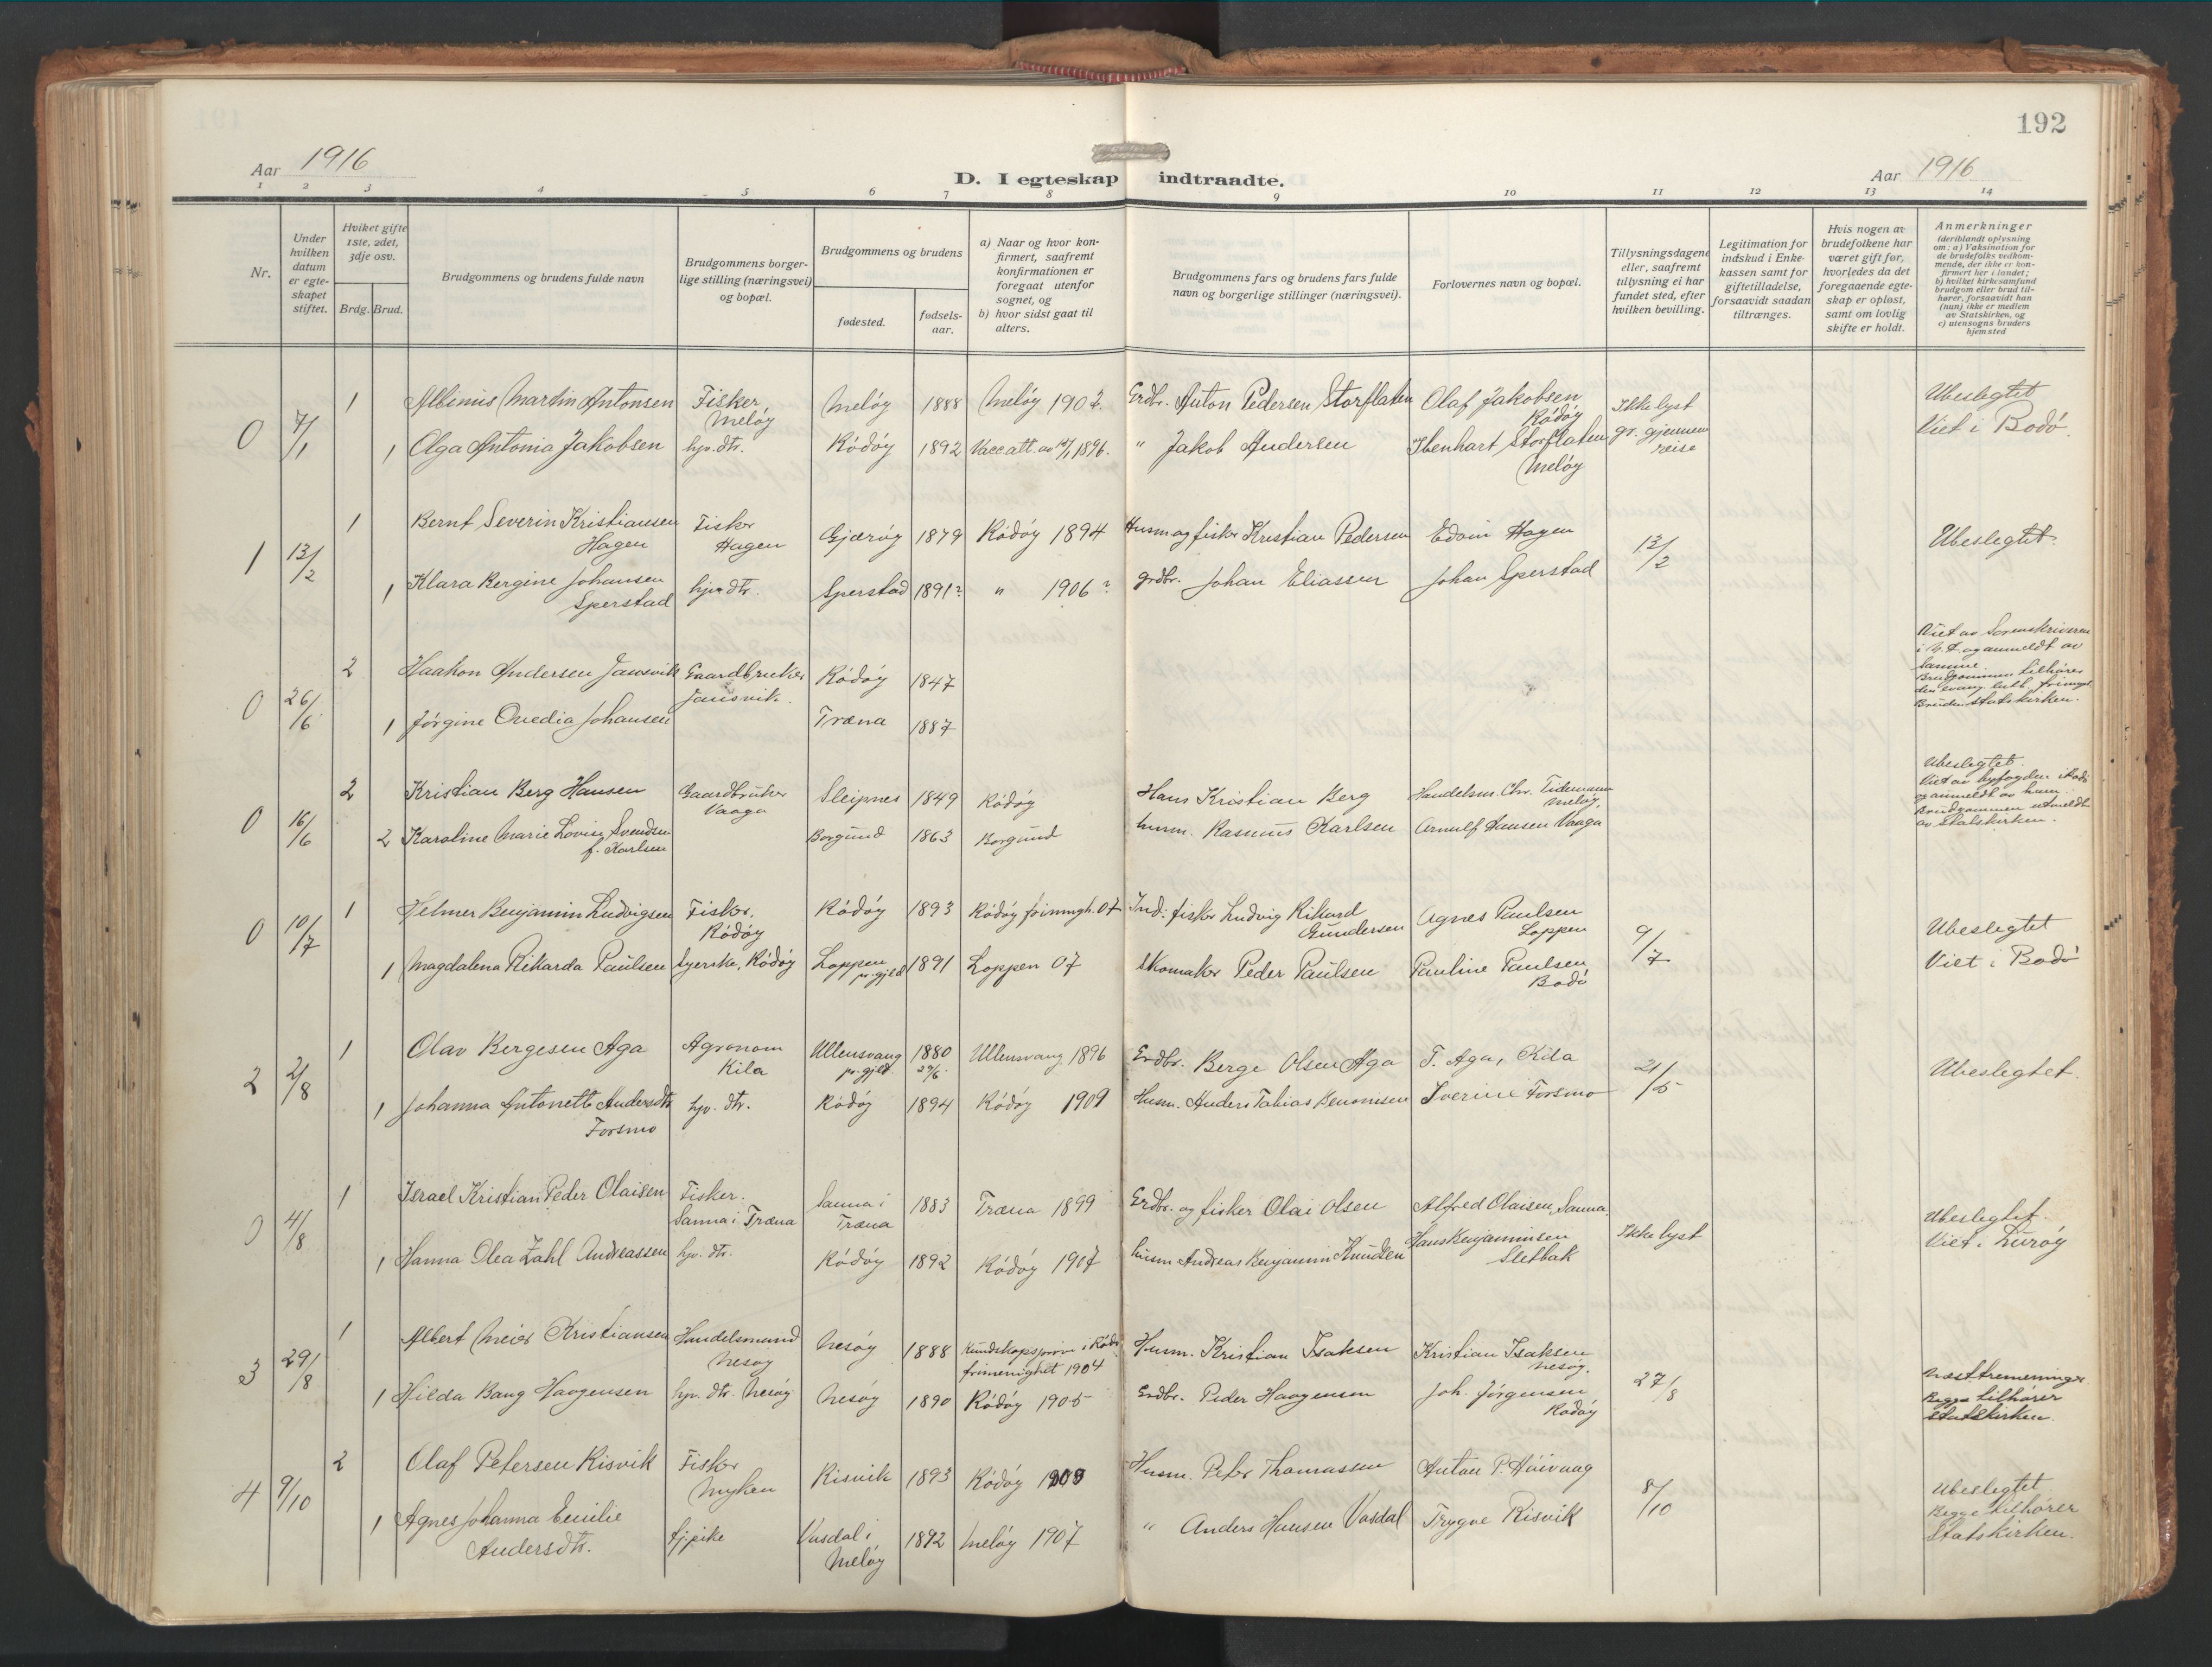 192
Aar 1916
D. I egteskap indtraadte.
Aar 1916
1 2 3 4 5 6 7 8 9 10 11 12 13 14
Nr.
Under hvilken datum er egteskapet stiftet.
Hvilket gifte 1ste, 2det, 3dje osv.
Brdg. Brud.
Brudgommens og brudens fulde navn
Brudgommens borgerlige stilling (næringsvei) og bopæl.
Brudgommens og brudens
fødested.
fødselsaar.
a) Naar og hvor konfirmert, saafremt konfirmationen er foregaat utenfor sognet, og
b) hvor sidst gaat til alters.
Brudgommens fars og brudens fars fulde navn og borgerlige stillinger (næringsvei).
Forlovernes navn og bopæl.
Tillysningsdagene eller, saafremt tillysning ei har fundet sted, efter hvilken bevilling.
Legitimation for indskud i Enkekassen samt for giftetilladelse, forsaavidt saadan tiltrænges.
Hvis nogen av brudefolkene har været gift før, hvorledes da det foregaaende egteskap er opløst, samt om lovlig skifte er holdt.
Anmerkninger (deriblandt oplysning om: a) Vaksination for de brudefolks vedkommende, der ikke er konfirmert her i landet; b) hvilket kirkesamfund brudgom eller brud tilhører, forsaavidt han (hun) ikke er medlem av Statskirken, og c) utensogns bruders hjemsted
0 7/1 1 Albinius Martin Antonsen Fisker Meløy Meløy 1888 Meløy 1902. Grdbr. Anton Pedersen Storflaten Olaf Jakobsen Rødøy Ikke lyst gr. gjennemreise Ubeslegtet
1 Olga Antonia Jakobsen hjv. dtr. Rødøy 1892 Vacc. att. av 1896. " Jakob Andersen Ibenhart Storflaten Meløy Viet i Bodø.
1 13/2 1 Bernt Severin Kristiansen Hagen Fisker Hagen Gjærøy 1879 Rødøy 1894 Husm og fisker Kristian Pedersen Edvin Hagen 13/2 Ubeslegtet.
1 Klara Bergine Johansen Sperstad hjv. dtr. Sperstad 1891? " 1906? grdbr. Johan Eliassen Johan Sperstad
0 26/6 2 Haakon Andersen Jansvik Gaardbruker Jansvik. Rødøy 1847 Viet av Sorenskriveren i og anmeldt av samme. Brudgommen tilhører den evang. luth. frimgh. Bruden statskirken.
1 Jørgine Ovedia Johansen Træna 1887
0 16/6 2 Kristian Berg Hansen Gaardbruker Vaaga Sleipnes 1849 Rødøy Hans Kristian Berg Handelsm. Chr. Tidemann Meløy. Ubeslegtet. Viet av byfogden i Bodø og anmeldt av ham. Brudgommen utmeldt av Statskirken.
2 Karoline Marie Lovise Svendsen f. Karlsen Borgund 1863 Borgund husm. Rasmus Karlsen Arnulf Hansen Vaaga
0 10/7 1 Hilmer Benjamin Ludvigsen Fisker. Rødøy Rødøy 1893 Rødøy frimngh. 07 Ind: fisker Ludvig Rikard Gundersen Agnes Paulsen Loppen 9/7 Ubeslegtet
1 Magdalena Rikarda Paulsen Syerske, Rødøy Loppen pr.gjeld 1891 Loppen 07 Skomaker Peder Paulsen Pauline Paulsen Bodø Viet i Bodø
2 2/8 1 Olav Bergesen Aga Agronom Kila Ullensvang pr.gjeld. 1880 29/6. Ullensvang 1896 Grdbr. Berge Olsen Aga T. Aga, Kila 21/5 Ubeslegtet.
1 Johanna Antonette Andersdtr. Forsmo hjv. dtr. Rødøy 1894 Rødøy 1909 Husm. Anders Tobias Benonisen Iverine Forsmo
0 4/8 1 Israel Kristian Peder Olaisen Fisker. Sanna i Træna Sanna i Træna 1883 Træna 1899 Grdbr. og fisker Olai Olsen Alfred Olaisen, Sanna. Ikke lyst Ubeslegtet.
1 Hanna Olea Zahl Andreassen hjv. dtr. Rødøy 1892 Rødøy 1907 husm Andreas Benjamin Knudsen Hans Benjaminsen Sletbak Viet i Lurøy
3 29/8 1 Albert Meier Kristiansen Handelsmand Nesøy Nesøy 1888 Kundskapsprøve i Rødø frimenighet 1904 Husm. Kristian Isaksen Kristian Isaksen Nesøy. 27/8 Næsttremenninger.
1 Hilda Bang Haagensen hjv. dtr. Nesøy Nesøy 1890 Rødøy 1905 Grdbr. Peder Haagensen Joh. Jørgensen Rødøy Begge tilhører statskirken.
4 9/10 2 Olaf Petersen Risvik Fisker Myken Risvik 1893 Rødøy 1909 Husm. Peter Thomassen Anton P. Høivaag 8/10 Ubeslegtet
1 Agnes Johanna Emilie Andersdtr. tjpike Vasdal i Meløy 1892 Meløy 1907 " Anders Hansen Vasdal Trygve Risvik Begge tilhører Statskirken.